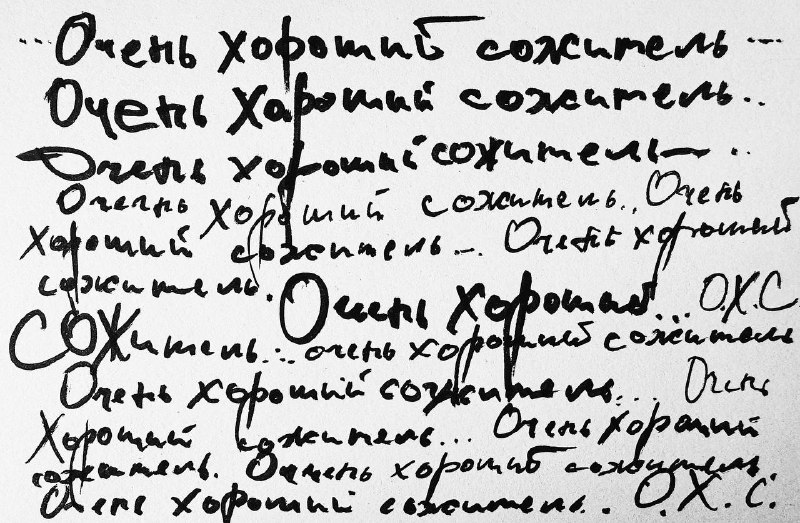 ... Очень хороший сожитель ...
Очень хороший сожитель..
Очень хороший сожитель — ..
Очень хороший сожитель... Очень
хороший сожитель... Очень хороший
сожитель. Очень хороший... О.Х.С
СОЖитель... очень хороший сожитель
Очень хороший сожитель... Очень
Хороший сожитель... Очень хороший
сожитель. Очень хороший сожитель.
Очень хороший сожитель.. О.Х.С.